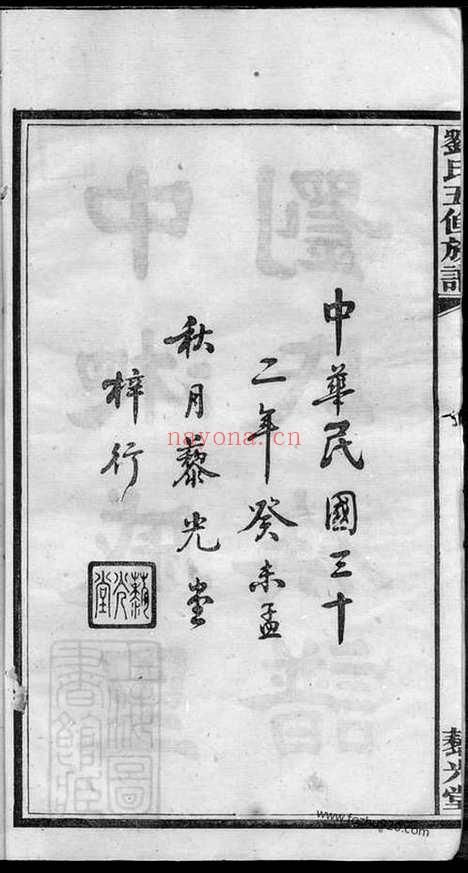 劉氏五修族譜
中華民國三十
二年癸未孟
秋月藜光堂
梓行
藜光堂
藜光堂
上海圖
書館藏
nayona.cn
www.fozhu920.com